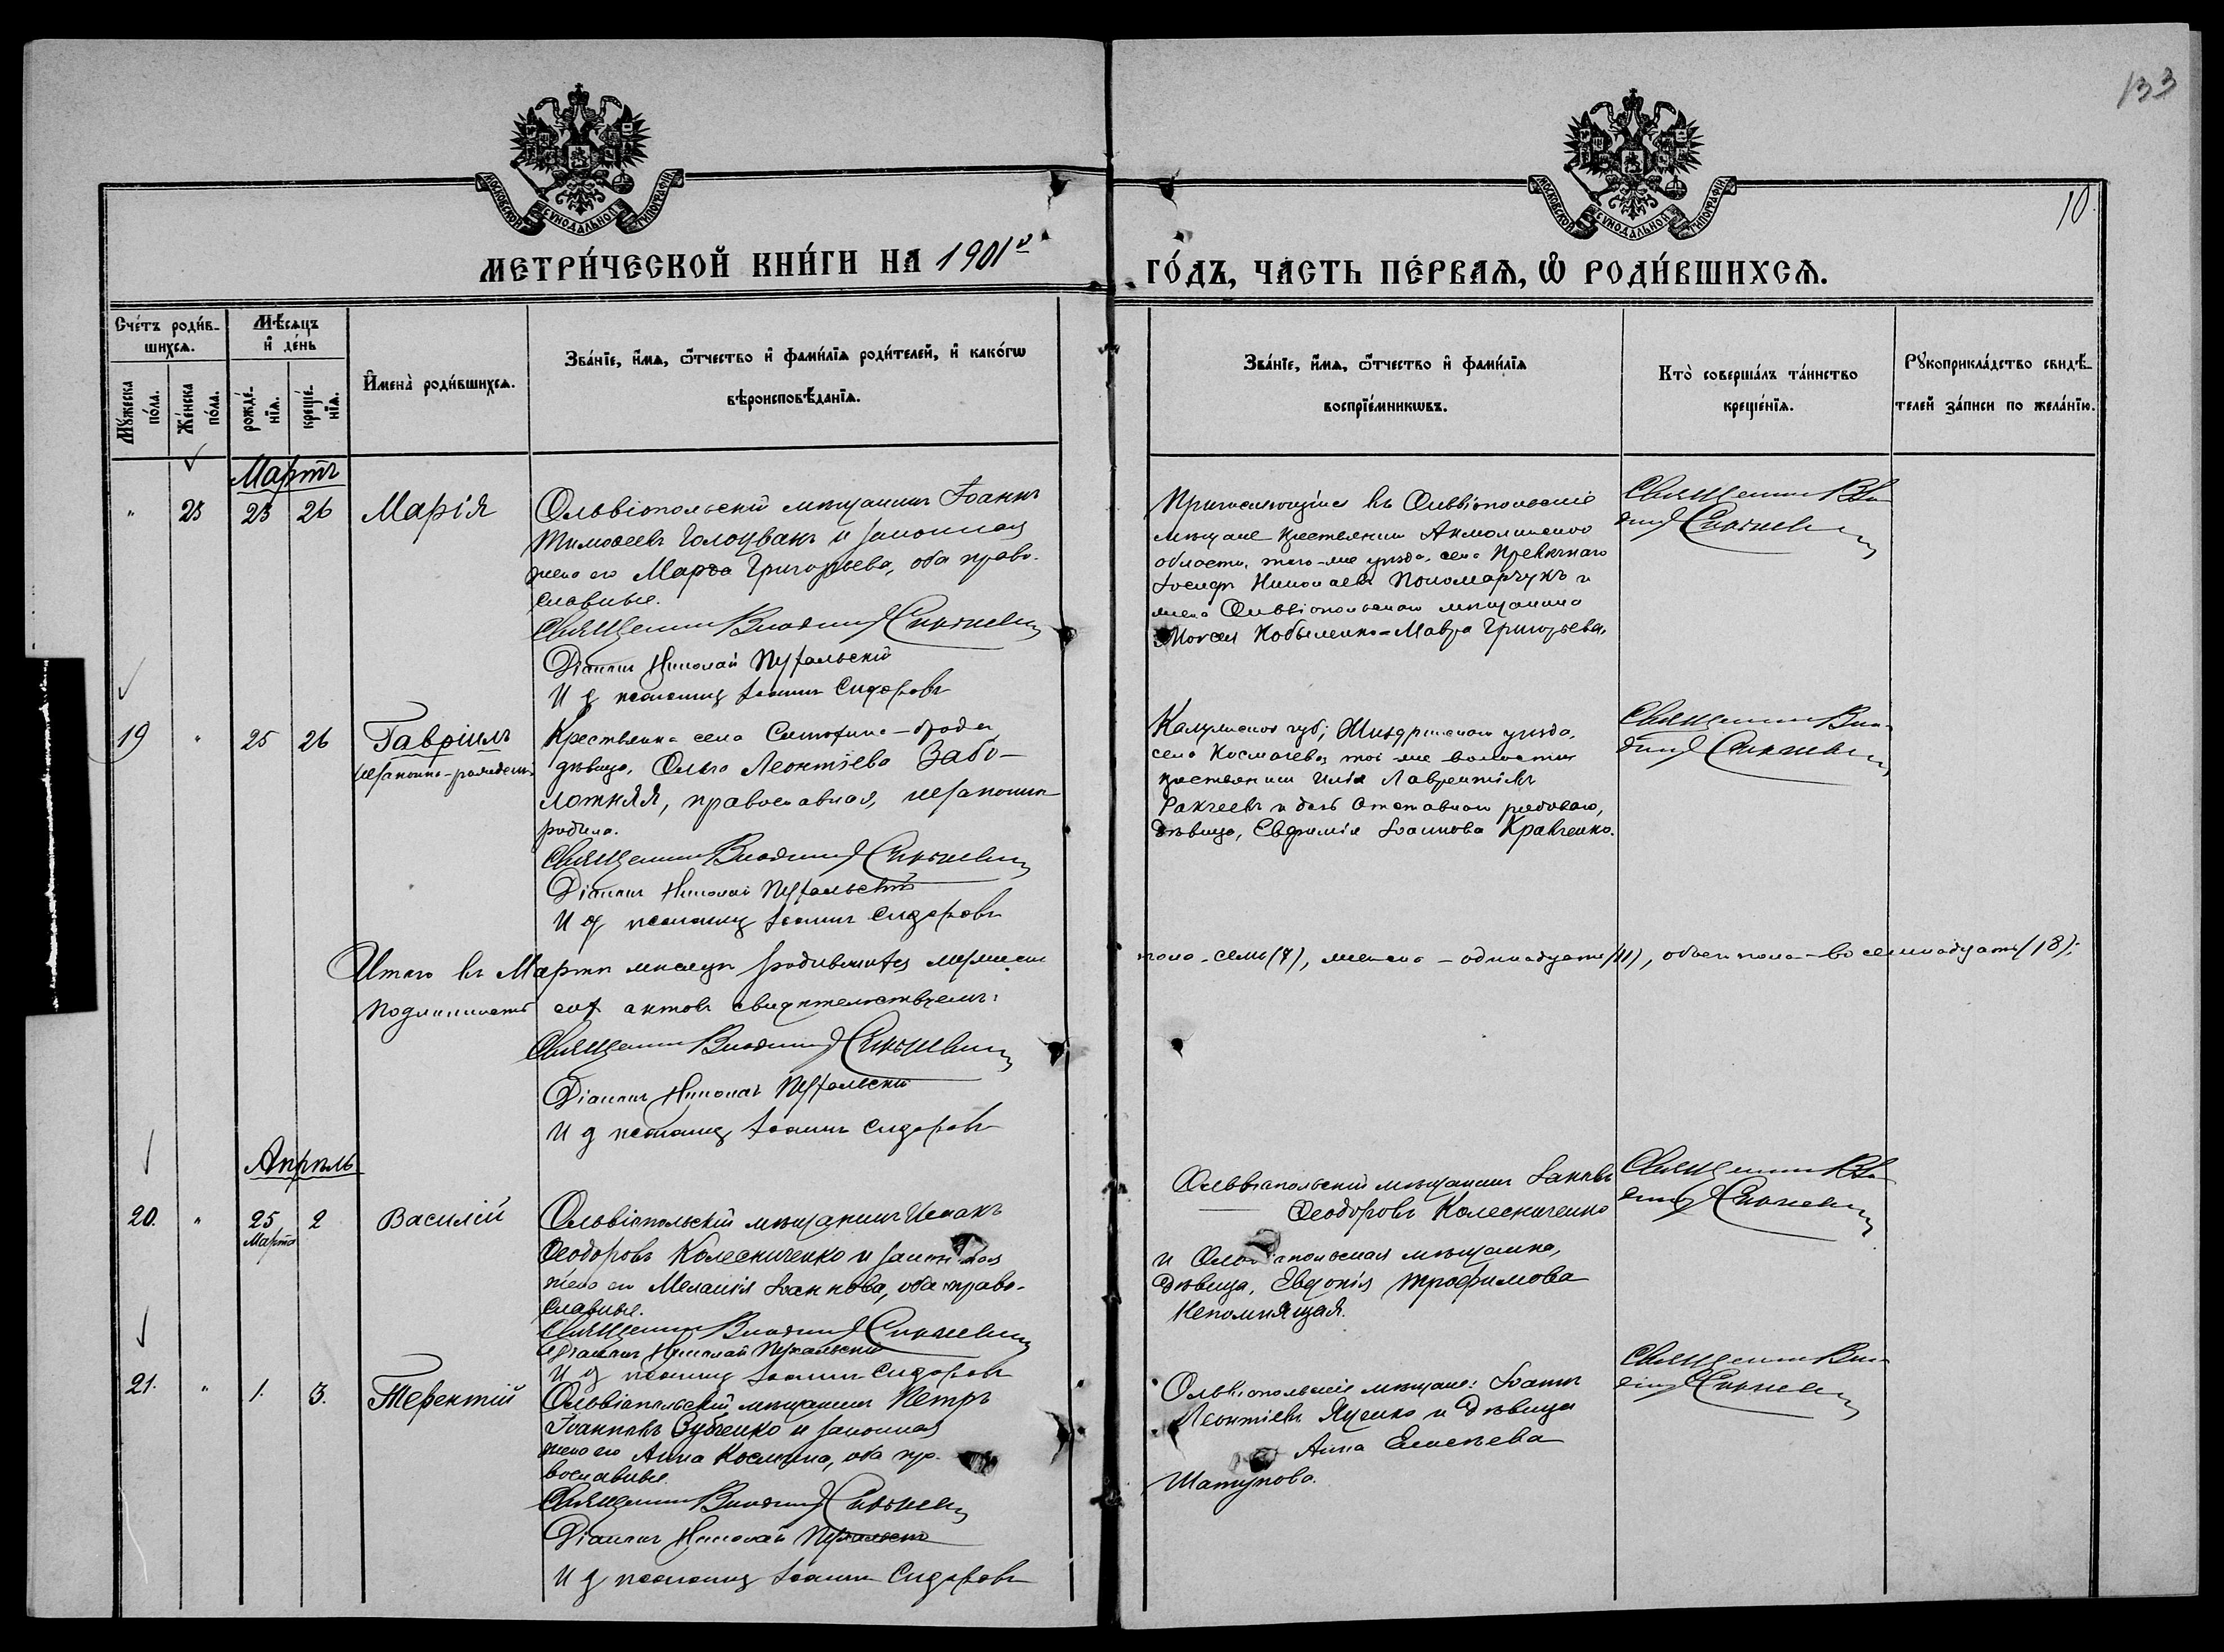 133
10.
МОСКОВСКОЙ СУНОДАЛЬНОЙ ТИПОГРАФІИ
МОСКОВСКОЙ СУНОДАЛЬНОЙ ТИПОГРАФІИ
МЕТРИ́ЧЕСКОЙ КНИ́ГИ НА 1901й
ГО́ДЪ, ЧА́СТЬ ПЕ́РВАЯ, Ѡ РОДИ́ВШИХСЯ.
Сче́тъ роди́в-
шихся.
Мꙋжеска по́ла.
Же́нска по́ла.
Мѣ́сяцъ и де́нь
рожде́-нїя.
креще́-нїя.
Имена̀ роди́вшихся.
Зва́нїе, и́мя, ѻ́тчество и фами́лїя роди́телей, и како́гѡ
вѣроисповѣ́данїя.
Зва́нїе, и́мя, ѻ́тчество и фами́лїя
воспрїе́мникѡвъ.
Кто̀ соверша́лъ та́инство
креще́нїя.
Рꙋкоприкла́дство свидѣ́-
телей за́писи по жела́нїю.
Мартъ
" 25 25 26 Марія
Ольвіопольскій мѣщанинъ Іоаннъ
Тимоѳеевъ Голоцванъ и законная
жена его Марѳа Григорьева, оба право-
славные.
Священникъ Владимір
Діаконъ Николай
И д псаломщ Іоаннъ Сидоровъ
Причисляющіеся къ Ольвіопольскіе
мѣщане крестьянинъ Акмолинской
области, того-же уѣзда, села Превѣчнаго
Іосифъ Николаевъ Пономарчукъ и
жена Ольвіопольскаго мѣщанина
Моисея Кобыленко - Мавра Григорьева.
Священникъ Вла-
димір
19 " 25 26 Гавріилъ
незаконно-рожденъ
Крестьянка села Синюхина-брода,
дѣвица, Ольга Леонтіева Забо-
лотняя, православная, незаконно
родила.
Священникъ Владимір
Діаконъ Николай
И д псаломщ Іоаннъ Сидоровъ
Калужской губ; Жиздринскаго уѣзда,
села Космачева, той же волости
крестьянинъ Илія Лаврентіевъ
Ракчеевъ и дочь отставнаго рядоваго,
дѣвица, Евфимія Іоаннова Кравченко.
Священникъ Вла-
димір
Итого въ Мартѣ мѣсяцѣ родившихся мужеска
пола - семь (7), женска - одинадцать (11), обоего пола - восемнадцать (18);
подлинность сихъ актовъ свидѣтельствуемъ:
Священникъ Владимір
Діаконъ Николай
И д псаломщ Іоаннъ Сидоровъ
Апрѣль
20. " 25 Марта 2 Василій
Ольвіопольскій мѣщанинъ Исаакъ
Ѳеодоровъ Колесниченко и законная
жена его Меланія Іоаннова, оба право-
славные.
Священникъ Владимір
Діаконъ Николай
И д псаломщ Іоаннъ Сидоровъ
Ольвіопольскій мѣщанинъ Іаковъ
Ѳеодоровъ Колесниченко
и Ольвіопольская мѣщанка,
дѣвица, Евдокія Трофимова
Непомнящая.
Священникъ Вла-
димір
21. " 1. 3. Терентій
Ольвіопольскій мѣщанинъ Петръ
Іоанновъ Зубченко и законная
жена его Анна Космина, оба пра-
вославные.
Священникъ Владимір
Діаконъ Николай
И д псаломщ Іоаннъ Сидоровъ
Ольвіопольскіе мѣщане: Іоаннъ
Леонтіевъ Яценко и дѣвица
Анна Елисѣева
Шатунова.
Священникъ Вла-
димір